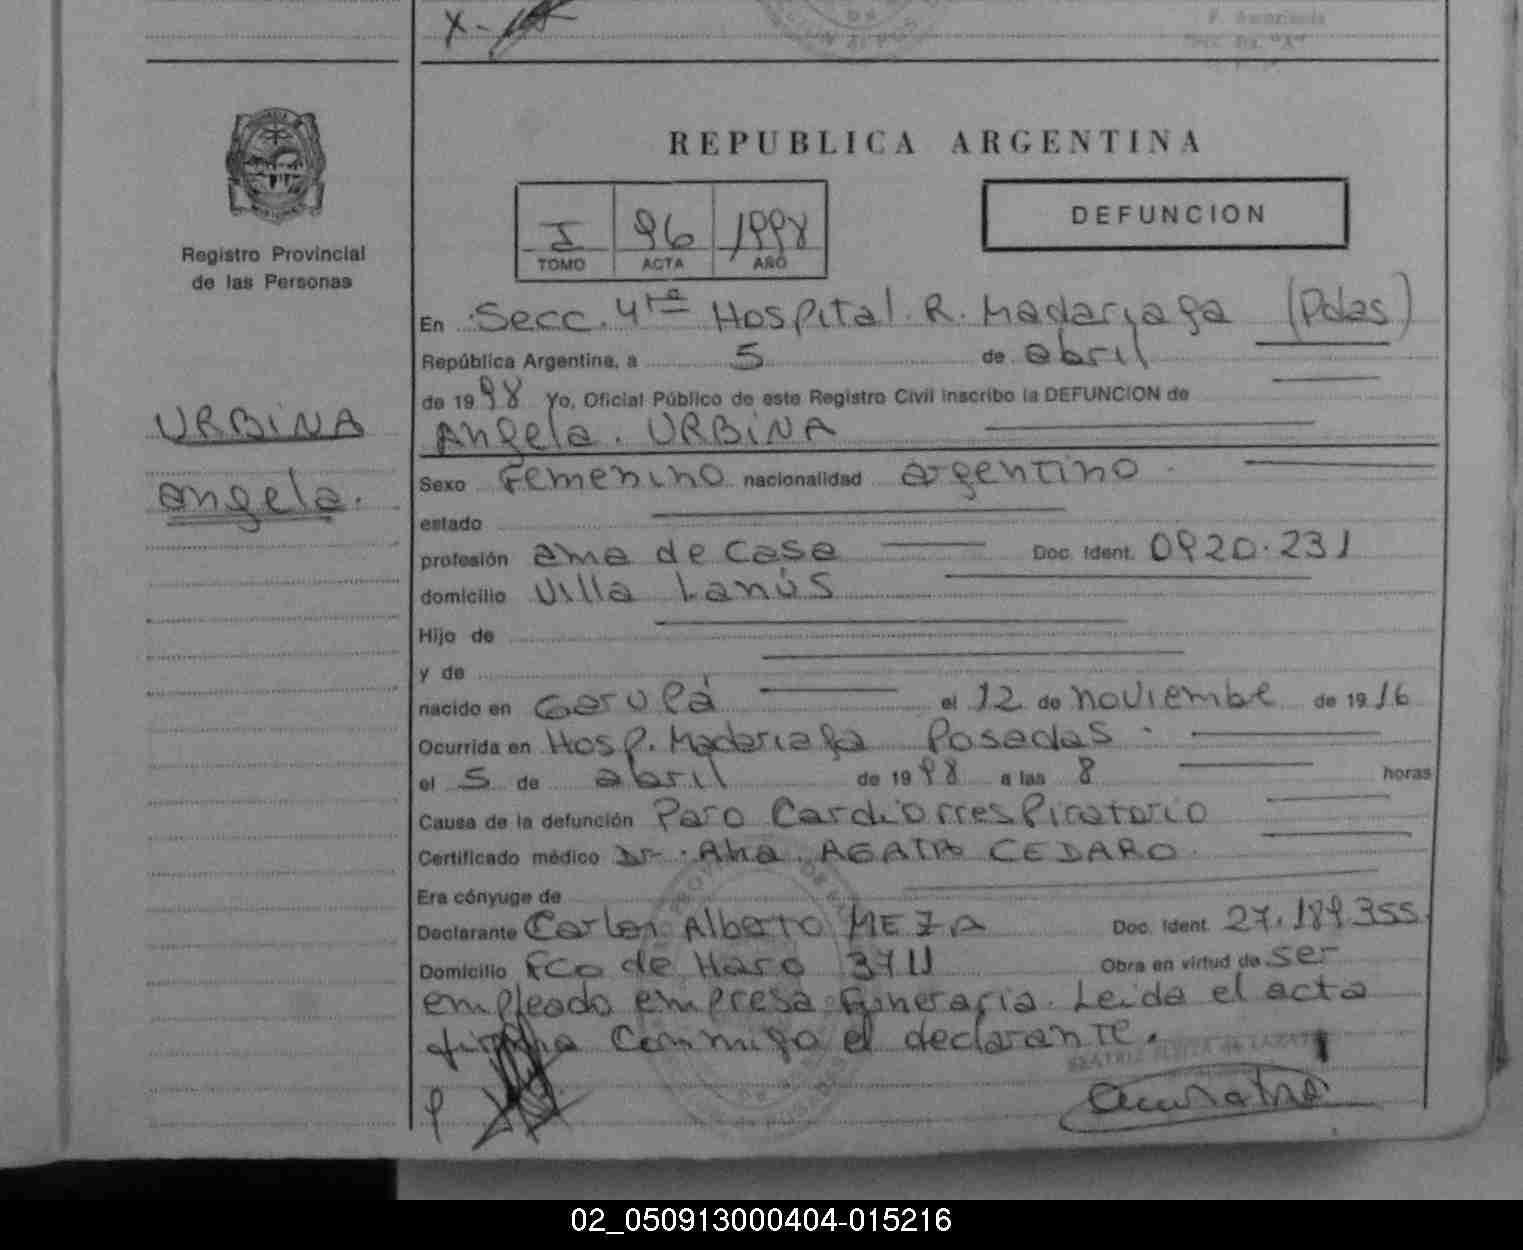 REPUBLICA ARGENTINA
Registro Provincial
de las Personas
I 96 1998
TOMO ACTA AÑO
DEFUNCION
En Secc. 4ta Hospital R. Madariaga (Pdas)
República Argentina, a 5 de abril
de 1998 Yo, Oficial Público de este Registro Civil inscribo la DEFUNCION de
Angela. URBINA
URBINA
angela.
Sexo Femenino nacionalidad argentino
estado
profesión ama de casa Doc. Ident. 0920.231
domicilio Villa Lanús
Hijo de
y de
nacido en Garupá el 12 de noviembre de 1916
Ocurrida en Hosp. Madariaga Posadas
el 5 de abril de 1998 a las 8 horas
Causa de la defunción Paro Cardiorrespiratorio
Certificado médico Dr. Ana AGATA CEDARO
Era cónyuge de
Declarante Carlos Alberto MEZA Doc. Ident. 27.189.355
Domicilio Fco de Haro 3711 Obra en virtud de ser
empleado empresa Funeraria. Leida el acta
firma conmigo el declarante.
02_050913000404-015216